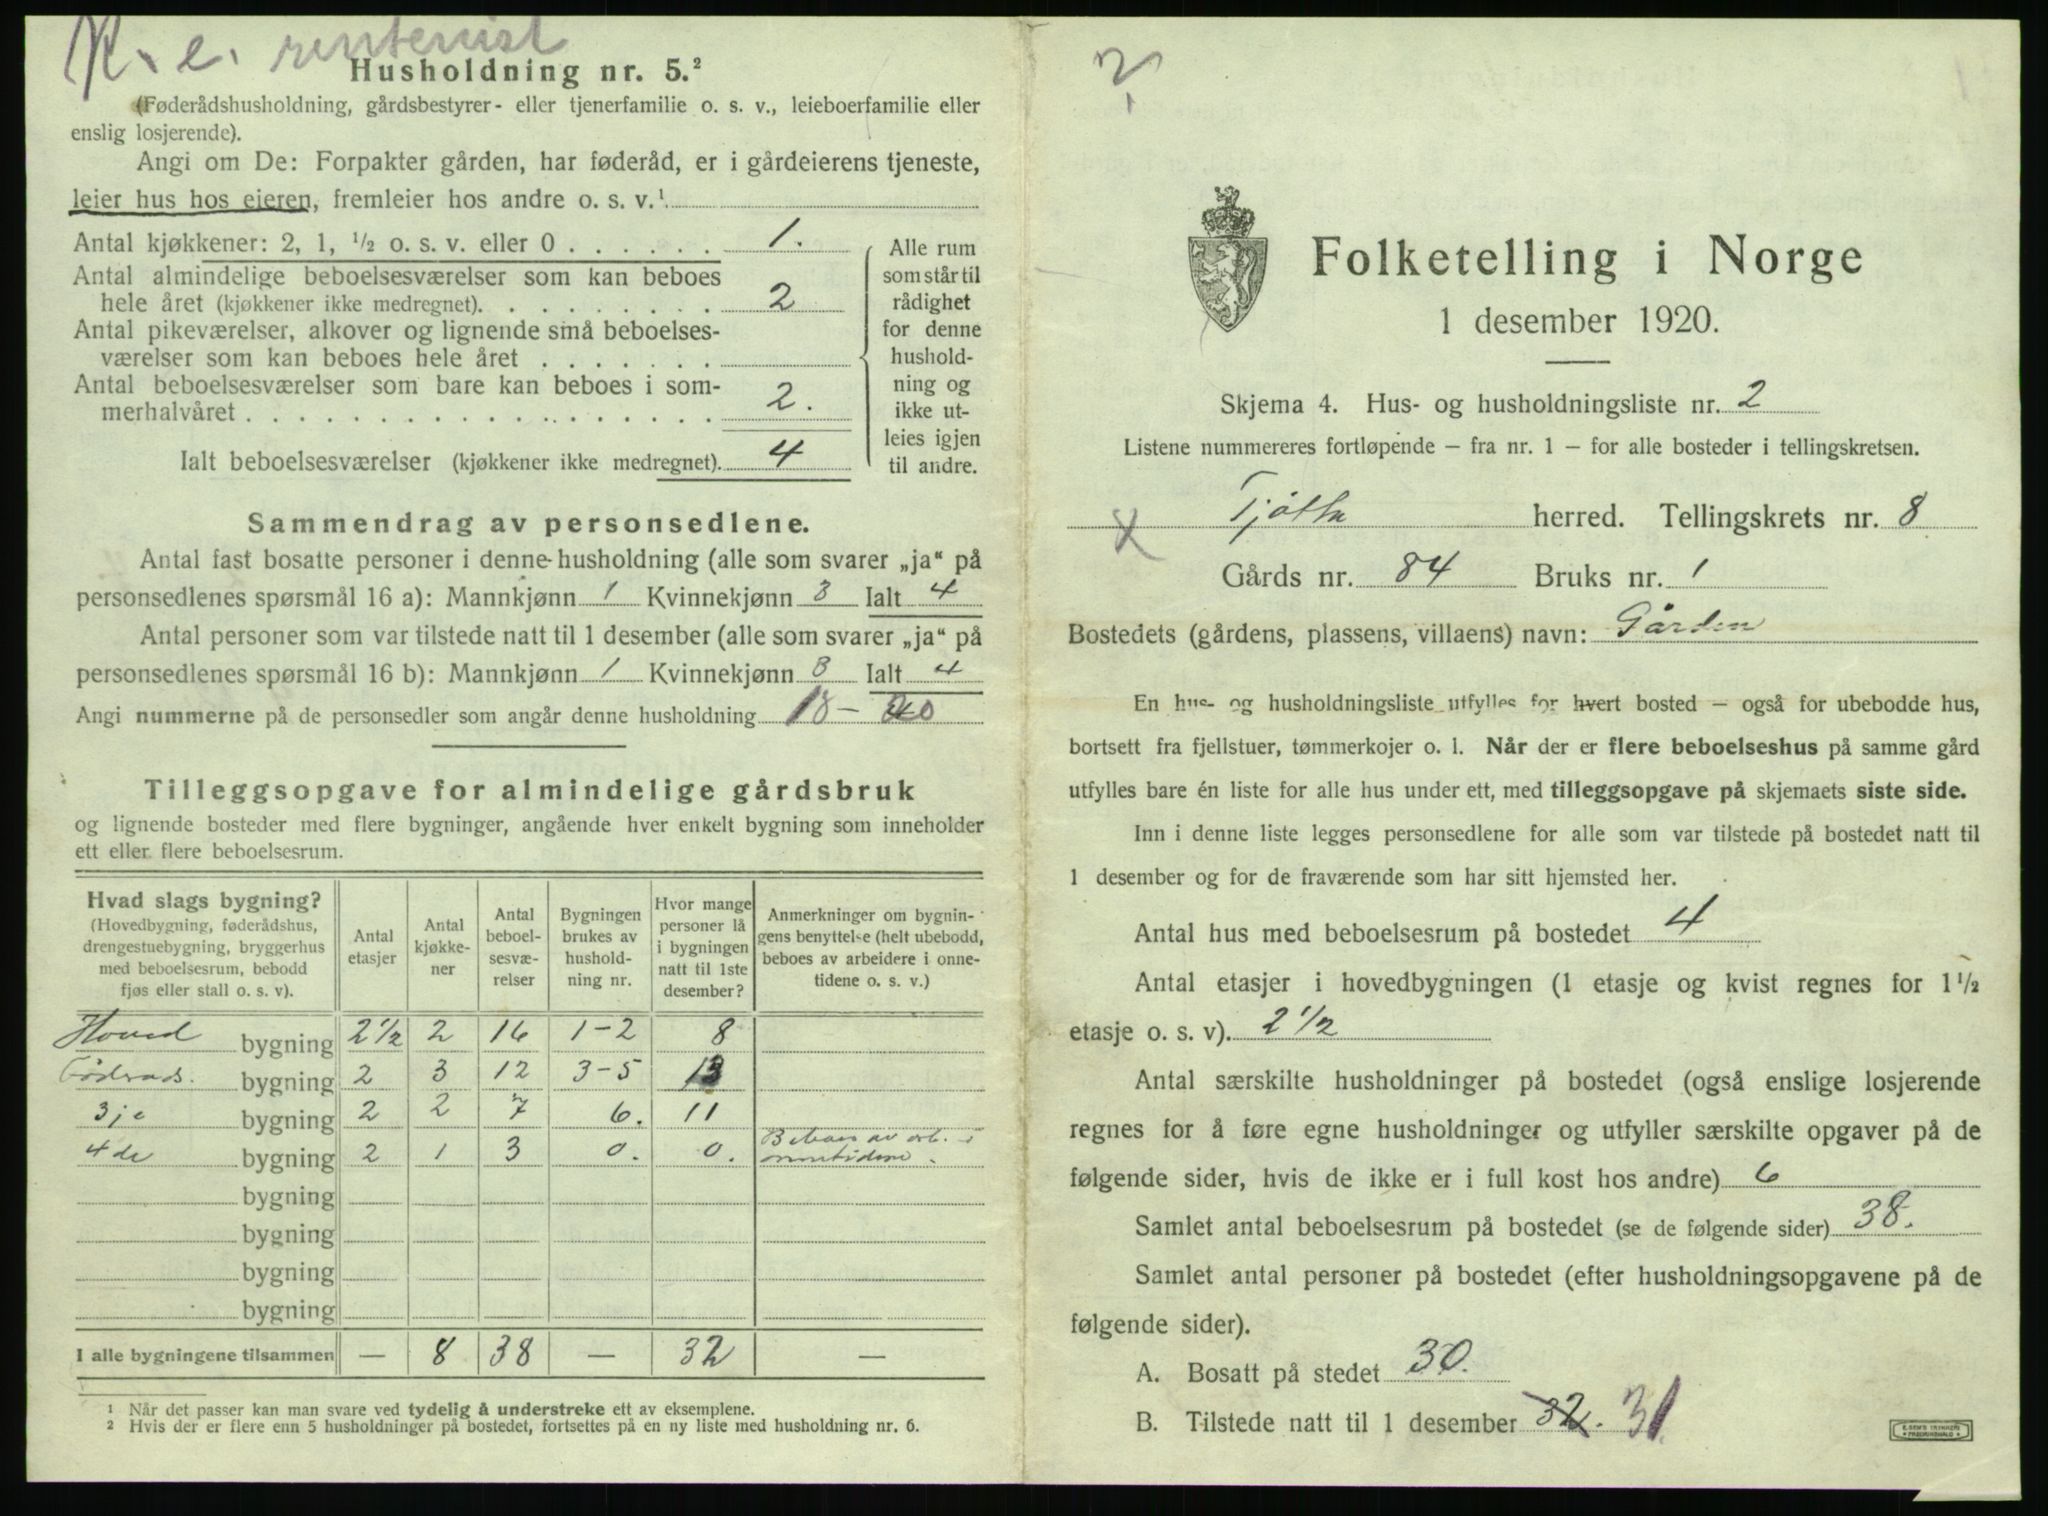 K. e. rentenist
Husholdning nr. 5.²
(Føderådshusholdning, gårdsbestyrer- eller tjenerfamilie o. s. v., leieboerfamilie eller
enslig losjerende).
Angi om De: Forpakter gården, har føderåd, er i gårdeierens tjeneste,
leier hus hos eieren, fremleier hos andre o. s. v.¹
Antal kjøkkener: 2, 1, ½ o. s. v. eller 0 . . . . . . 1.
Antal almindelige beboelsesværelser som kan beboes
hele året (kjøkkener ikke medregnet). . . . . . . . . 2
Antal pikeværelser, alkover og lignende små beboelses-
værelser som kan beboes hele året . . . . . . .
Antal beboelsesværelser som bare kan beboes i som-
merhalvåret . . . . . . . . . . . . . . . . . 2.
Ialt beboelsesværelser (kjøkkener ikke medregnet). 4
Alle rum
som står til
rådighet
for denne
hushold-
ning og
ikke ut-
leies igjen
til andre.
Sammendrag av personsedlene.
Antal fast bosatte personer i denne husholdning (alle som svarer „ja“ på
personsedlenes spørsmål 16 a): Mannkjønn 1 Kvinnekjønn 3 Ialt 4
Antal personer som var tilstede natt til 1 desember (alle som svarer „ja“ på
personsedlenes spørsmål 16 b): Mannkjønn 1 Kvinnekjønn 3 Ialt 4
Angi nummerne på de personsedler som angår denne husholdning 18 –
Tilleggsopgave for almindelige gårdsbruk
og lignende bosteder med flere bygninger, angående hver enkelt bygning som inneholder
ett eller flere beboelsesrum.
Hvad slags bygning?
(Hovedbygning, føderådshus,
drengestuebygning, bryggerhus
med beboelsesrum, bebodd
fjøs eller stall o. s. v).
Antal
etasjer
Antal
kjøkke-
ner
Antal
beboel-
sesvæ-
relser
Bygningen
brukes av
hushold-
ning nr.
Hvor mange
personer lå
i bygningen
natt til 1ste
desember?
Anmerkninger om bygnin-
gens benyttelse (helt ubebodd,
beboes av arbeidere i onne-
tidene o. s. v.)
Hoved bygning 2½ 2 16 1–2 8
Föderads. bygning 2 3 12 3–5 13
3je bygning 2 2 7 6. 11
4de bygning 2 1 3 0. 0. Beboes av arb. i
onnetidene.
bygning
bygning
bygning
bygning
I alle bygningene tilsammen — 8 38 — 32 —
¹ Når det passer kan man svare ved tydelig å understreke ett av eksemplene.
² Hvis der er flere enn 5 husholdninger på bostedet, fortsettes på en ny liste med husholdning nr. 6.
Folketelling i Norge
1 desember 1920.
Skjema 4. Hus- og husholdningsliste nr. 2
Listene nummereres fortløpende – fra nr. 1 – for alle bosteder i tellingskretsen.
Tjøtta herred. Tellingskrets nr. 8
Gårds nr. 84 Bruks nr. 1
Bostedets (gårdens, plassens, villaens) navn: Gården
En hus- og husholdningsliste utfylles for hvert bosted – også for ubebodde hus,
bortsett fra fjellstuer, tømmerkojer o. l. Når der er flere beboelseshus på samme gård
utfylles bare én liste for alle hus under ett, med tilleggsopgave på skjemaets siste side.
Inn i denne liste legges personsedlene for alle som var tilstede på bostedet natt til
1 desember og for de fraværende som har sitt hjemsted her.
Antal hus med beboelsesrum på bostedet 4
Antal etasjer i hovedbygningen (1 etasje og kvist regnes for 1½
etasje o. s. v). 2½
Antal særskilte husholdninger på bostedet (også enslige losjerende
regnes for å føre egne husholdninger og utfyller særskilte opgaver på de
følgende sider, hvis de ikke er i full kost hos andre) 6
Samlet antal beboelsesrum på bostedet (se de følgende sider) 38.
Samlet antal personer på bostedet (efter husholdningsopgavene på de
følgende sider).
A. Bosatt på stedet 30.
B. Tilstede natt til 1 desember 32. 31.